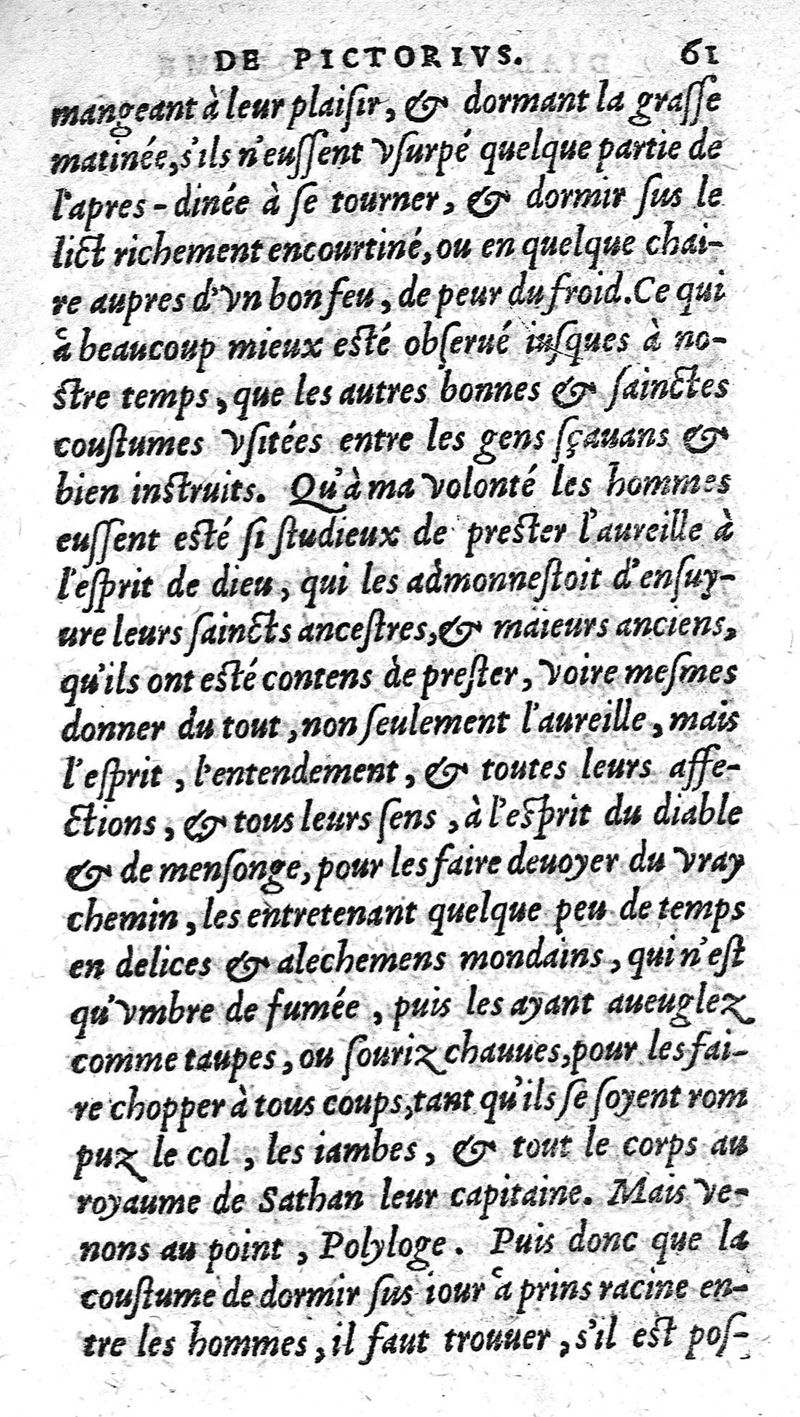 DE PICTORIVS. 61
mangeant à leur plaiſir, & dormant la graſſe
matinée, s'ils n'euſſent vſurpé quelque partie de
l'apres-dinée à ſe tourner, & dormir ſus le
lict richement encourtiné, ou en quelque chai-
re aupres d'vn bon feu, de peur du froid. Ce qui
à beaucoup mieux eſté obſerué iuſques à no-
ſtre temps, que les autres bonnes & ſainctes
couſtumes vſitées entre les gens ſçauans &
bien inſtruits. Qu'à ma volonté les hommes
euſſent eſté ſi ſtudieux de preſter l'aureille à
l'eſprit de dieu, qui les admonneſtoit d'enſuy-
ure leurs ſaincts anceſtres, & maieurs anciens,
qu'ils ont eſté contens de preſter, voire meſmes
donner du tout, non ſeulement l'aureille, mais
l'eſprit, l'entendement, & toutes leurs affe-
ctions, & tous leurs ſens, à l'eſprit du diable
& de menſonge, pour les faire deuoyer du vray
chemin, les entretenant quelque peu de temps
en delices & alechemens mondains, qui n'eſt
qu'vmbre de fumée, puis les ayant aueuglez
comme taupes, ou ſouriz chauues, pour les fai-
re chopper à tous coups, tant qu'ils ſe ſoyent rom
puz le col, les iambes, & tout le corps au
royaume de Sathan leur capitaine. Mais ve-
nons au point, Polyloge. Puis donc que la
couſtume de dormir ſus iour à prins racine en-
tre les hommes, il faut trouuer, s'il eſt poſ-